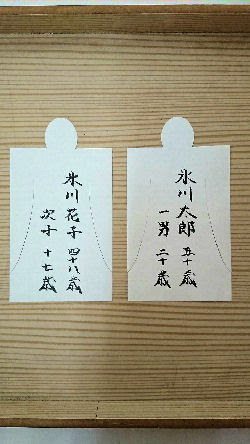 氷川太郎 五十歳
一男 二十歳
氷川花子 四十八歳
次子 十七歳